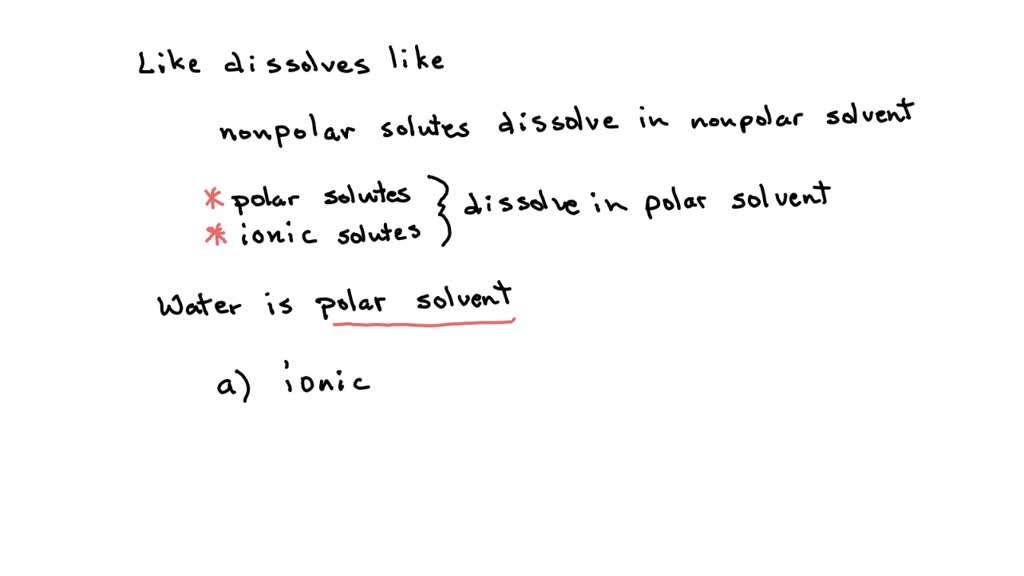 Like dissolves like
nonpolar solutes dissolve in nonpolar solvent
* polar solutes } dissolve in polar solvent
* ionic solutes
Water is polar solvent
a) ionic